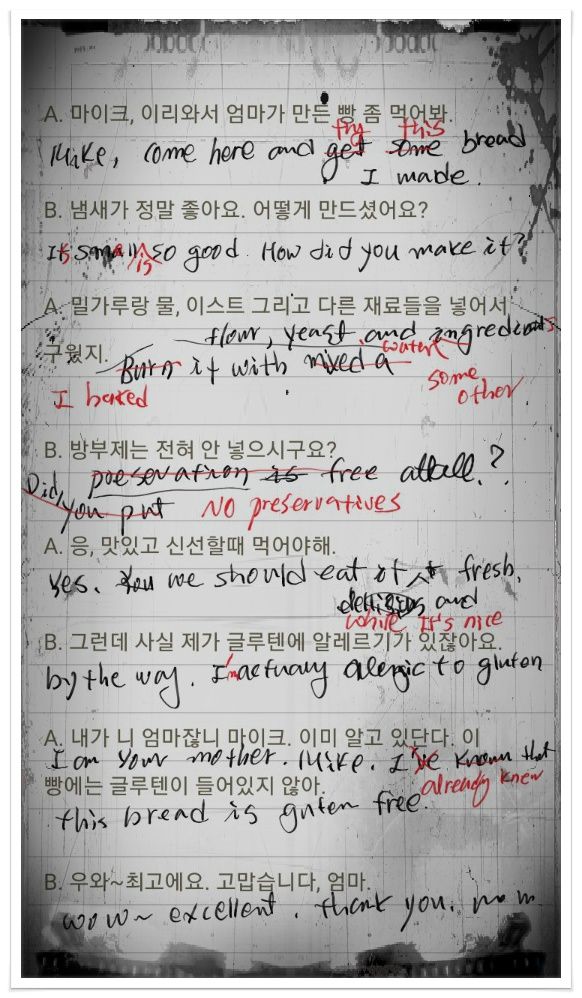 A. 마이크, 이리와서 엄마가 만든 빵 좀 먹어봐.
try this
Mike, come here and get some bread
I made.
B. 냄새가 정말 좋아요. 어떻게 만드셨어요?
so good. How did you make it?
is
A. 밀가루랑 물, 이스트 그리고 다른 재료들을 넣어서
flour, yeast, and ingredients
구웠지.
Burn it with mixed a water
I baked some
other
B. 방부제는 전혀 안 넣으시구요?
Did presevation is free atall.?
you put NO preservatives
A. 응, 맛있고 신선할때 먹어야해.
Yes. You we should eat it fresh.
delicious and
while It's nice
B. 그런데 사실 제가 글루텐에 알레르기가 있잖아요.
by the way. I'm actually alergic to gluten
A. 내가 니 엄마잖니 마이크. 이미 알고 있단다. 이
I am your mother. Mike. I've known that
빵에는 글루텐이 들어있지 않아.
already knew
this bread is guten free.
B. 우와~최고에요. 고맙습니다, 엄마.
wow~ excellent. thank you. mom